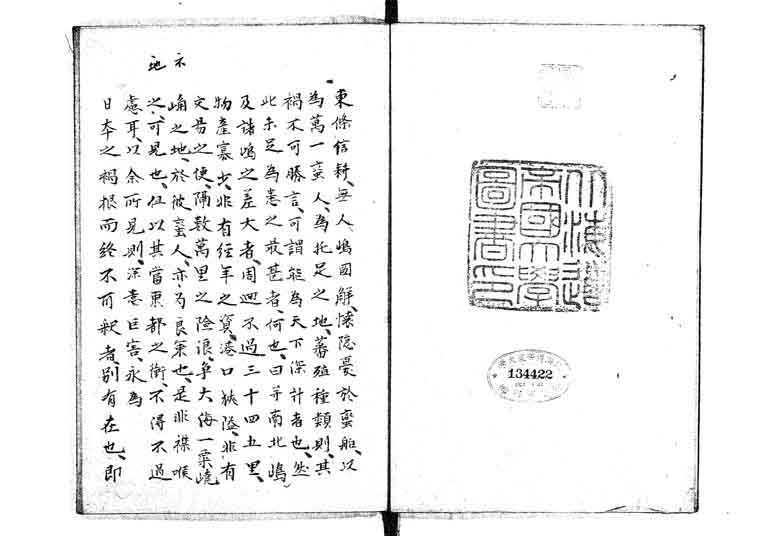 北海道
帝國大學
圖書印
134422
東條信耕、無人嶋國解、懷隱憂於蠻船、以
為萬一蠻人、為托足之地、蕃殖種類、則其
禍不可勝言、可謂能為天下深計者也、然
此未足為患之最甚者、何也、曰并南北嶋
及諸嶋之差大者、周廻不過三十四五里、
物產寡少、非有經年之資、港口狹隘、非有
交易之便、隔數萬里之險浪、爭大海一粟嶢
崅之地、於彼蠻人、亦乃良策也、是非襟喉
之、可見也、但以其當東都之衝、不得不過
慮耳、以余所見、則深意巨害、永為
日本之禍根而終不可釈者、別有在也、即
地